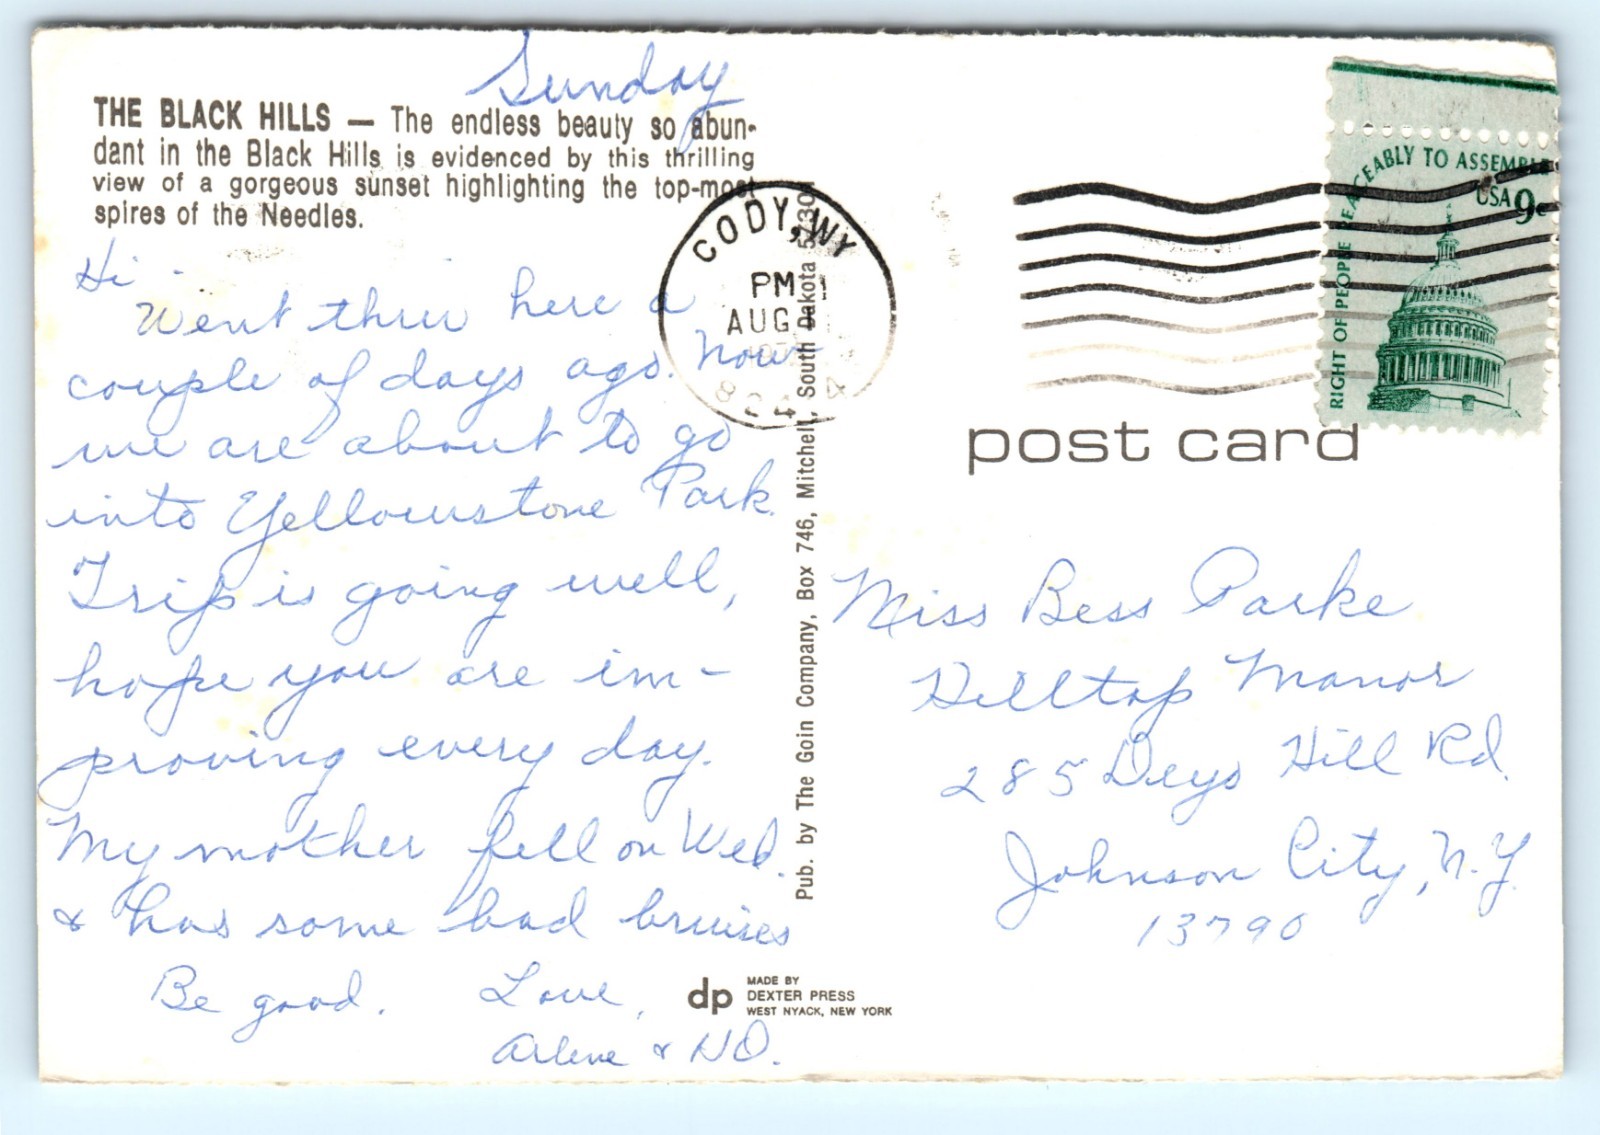 Sunday
THE BLACK HILLS — The endless beauty so abun-
dant in the Black Hills is evidenced by this thrilling
view of a gorgeous sunset highlighting the top-most
spires of the Needles.
Hi -
Went thru here a
couple of days ago. Now
we are about to go
into Yellowstone Park.
Trip is going well,
hope you are im-
proving every day.
My mother fell on Wed.
& has some bad bruises
Be good. Love,
Arlene & HD.
CODY, WY
PM
AUG
824
Pub. by The Goin Company, Box 746, Mitchell, South Dakota 57301
dp
MADE BY
DEXTER PRESS
WEST NYACK, NEW YORK
RIGHT OF PEOPLE PEACEABLY TO ASSEMBLE
USA 9c
post card
Miss Bess Parke
Hilltop Manor
285 Deys Hill Rd.
Johnson City, N.Y.
13790